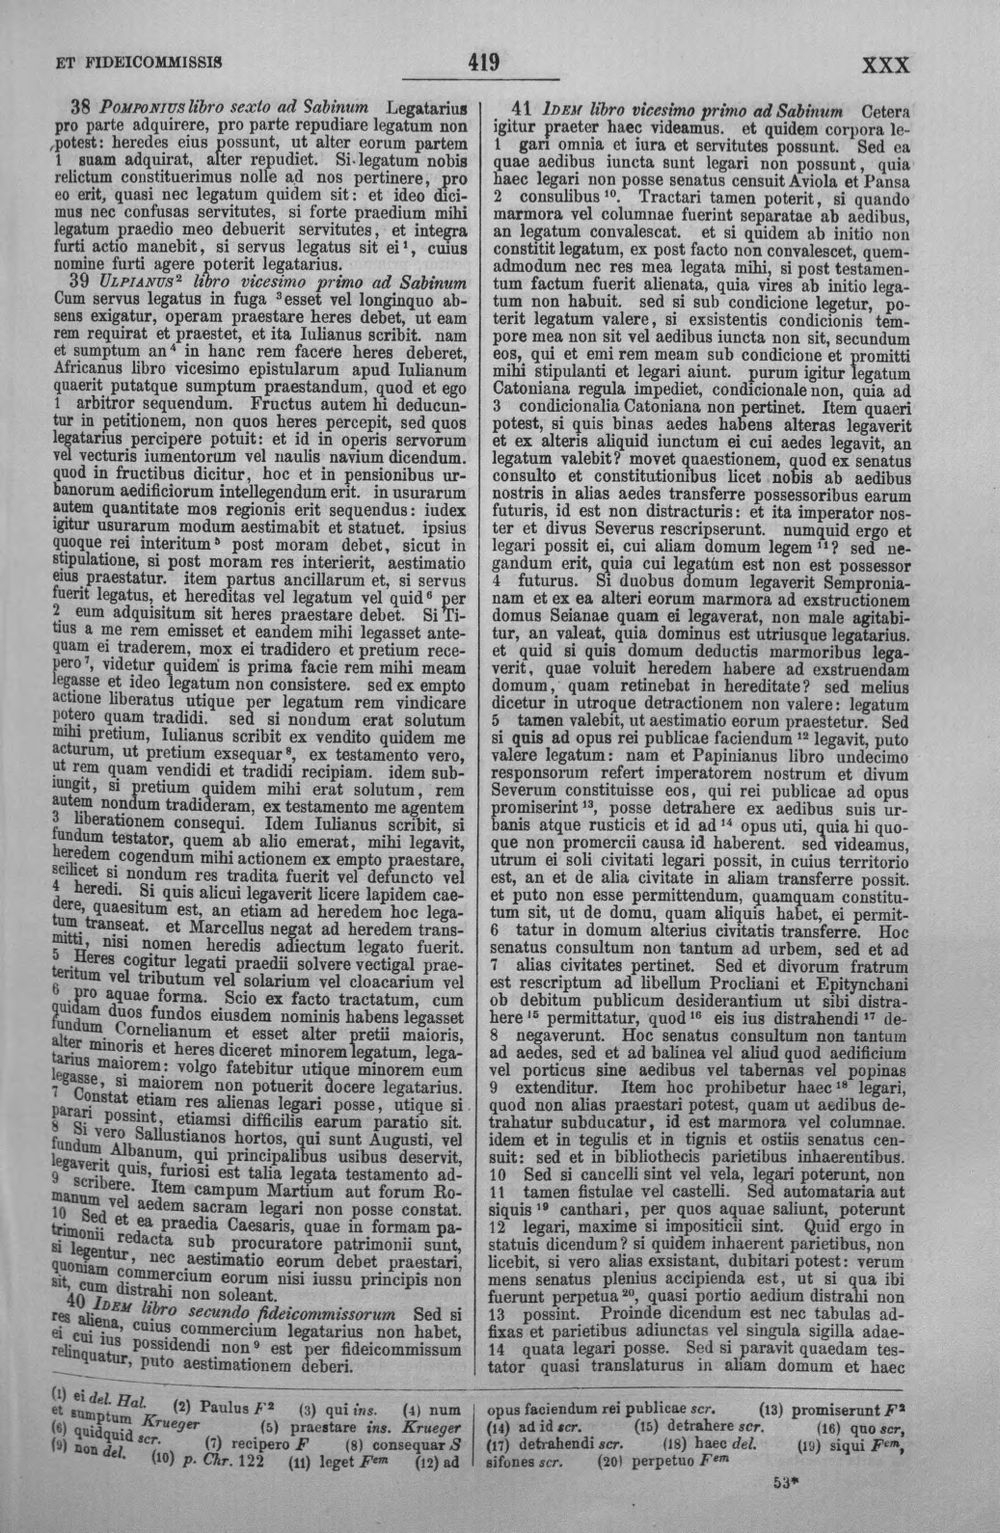 ET FIDEICOMMISSIS
419
XXX
38 POMPONIUS libro sexto ad Sabinum Legatarius
pro parte adquirere, pro parte repudiare legatum non
potest: heredes eius possunt, ut alter eorum partem
1 suam adquirat, alter repudiet. Si legatum nobis
relictum constituerimus nolle ad nos pertinere, pro
eo erit, quasi nec legatum quidem sit: et ideo dici-
mus nec confusas servitutes, si forte praedium mihi
legatum praedio meo debuerit servitutes, et integra
furti actio manebit, si servus legatus sit ei¹, cuius
nomine furti agere poterit legatarius.
39 ULPIANUS² libro vicesimo primo ad Sabinum
Cum servus legatus in fuga ³esset vel longinquo ab-
sens exigatur, operam praestare heres debet, ut eam
rem requirat et praestet, et ita Iulianus scribit. nam
et sumptum an⁴ in hanc rem facere heres deberet,
Africanus libro vicesimo epistularum apud Iulianum
quaerit putatque sumptum praestandum, quod et ego
1 arbitror sequendum. Fructus autem hi deducun-
tur in petitionem, non quos heres percepit, sed quos
legatarius percipere potuit: et id in operis servorum
vel vecturis iumentorum vel naulis navium dicendum.
quod in fructibus dicitur, hoc et in pensionibus ur-
banorum aedificiorum intellegendum erit. in usurarum
autem quantitate mos regionis erit sequendus: iudex
igitur usurarum modum aestimabit et statuet. ipsius
quoque rei interitum⁵ post moram debet, sicut in
stipulatione, si post moram res interierit, aestimatio
eius praestatur. item partus ancillarum et, si servus
fuerit legatus, et hereditas vel legatum vel quid⁶ per
2 eum adquisitum sit heres praestare debet. Si Ti-
tius a me rem emisset et eandem mihi legasset ante-
quam ei traderem, mox ei tradidero et pretium rece-
pero⁷, videtur quidem is prima facie rem mihi meam
legasse et ideo legatum non consistere. sed ex empto
actione liberatus utique per legatum rem vindicare
potero quam tradidi. sed si nondum erat solutum
mihi pretium, Iulianus scribit ex vendito quidem me
acturum, ut pretium exsequar⁸, ex testamento vero,
ut rem quam vendidi et tradidi recipiam. idem sub-
iungit, si pretium quidem mihi erat solutum, rem
autem nondum tradideram, ex testamento me agentem
3 liberationem consequi. Idem Iulianus scribit, si
fundum testator, quem ab alio emerat, mihi legavit,
heredem cogendum mihi actionem ex empto praestare,
scilicet si nondum res tradita fuerit vel defuncto vel
4 heredi. Si quis alicui legaverit licere lapidem cae-
dere, quaesitum est, an etiam ad heredem hoc lega-
tum transeat. et Marcellus negat ad heredem trans-
mitti, nisi nomen heredis adiectum legato fuerit.
5 Heres cogitur legati praedii solvere vectigal prae-
teritum vel tributum vel solarium vel cloacarium vel
6 pro aquae forma. Scio ex facto tractatum, cum
quidam duos fundos eiusdem nominis habens legasset
fundum Cornelianum et esset alter pretii maioris,
alter minoris et heres diceret minorem legatum, lega-
tarius maiorem: volgo fatebitur utique minorem eum
legasse, si maiorem non potuerit docere legatarius.
7 Constat etiam res alienas legari posse, utique si
parari possint, etiamsi difficilis earum paratio sit.
8 Si vero Sallustianos hortos, qui sunt Augusti, vel
fundum Albanum, qui principalibus usibus deservit,
legaverit quis, furiosi est talia legata testamento ad-
9 scribere. Item campum Martium aut forum Ro-
manum vel aedem sacram legari non posse constat.
10 Sed et ea praedia Caesaris, quae in formam pa-
trimonii redacta sub procuratore patrimonii sunt,
si legentur, nec aestimatio eorum debet praestari,
quoniam commercium eorum nisi iussu principis non
sit, cum distrahi non soleant.
40 IDEM libro secundo fideicommissorum Sed si
res aliena, cuius commercium legatarius non habet,
ei cui ius possidendi non⁹ est per fideicommissum
relinquatur, puto aestimationem deberi.
41 IDEM libro vicesimo primo ad Sabinum Cetera
igitur praeter haec videamus. et quidem corpora le-
1 gari omnia et iura et servitutes possunt. Sed ea
quae aedibus iuncta sunt legari non possunt, quia
haec legari non posse senatus censuit Aviola et Pansa
2 consulibus¹⁰. Tractari tamen poterit, si quando
marmora vel columnae fuerint separatae ab aedibus,
an legatum convalescat. et si quidem ab initio non
constitit legatum, ex post facto non convalescet, quem-
admodum nec res mea legata mihi, si post testamen-
tum factum fuerit alienata, quia vires ab initio lega-
tum non habuit. sed si sub condicione legetur, po-
terit legatum valere, si exsistentis condicionis tem-
pore mea non sit vel aedibus iuncta non sit, secundum
eos, qui et emi rem meam sub condicione et promitti
mihi stipulanti et legari aiunt. purum igitur legatum
Catoniana regula impediet, condicionale non, quia ad
3 condicionalia Catoniana non pertinet. Item quaeri
potest, si quis binas aedes habens alteras legaverit
et ex alteris aliquid iunctum ei cui aedes legavit, an
legatum valebit? movet quaestionem, quod ex senatus
consulto et constitutionibus licet nobis ab aedibus
nostris in alias aedes transferre possessoribus earum
futuris, id est non distracturis: et ita imperator nos-
ter et divus Severus rescripserunt. numquid ergo et
legari possit ei, cui aliam domum legem¹¹? sed ne-
gandum erit, quia cui legatum est non est possessor
4 futurus. Si duobus domum legaverit Sempronia-
nam et ex ea alteri eorum marmora ad exstructionem
domus Seianae quam ei legaverat, non male agitabi-
tur, an valeat, quia dominus est utriusque legatarius.
et quid si quis domum deductis marmoribus lega-
verit, quae voluit heredem habere ad exstruendam
domum, quam retinebat in hereditate? sed melius
dicetur in utroque detractionem non valere: legatum
5 tamen valebit, ut aestimatio eorum praestetur. Sed
si quis ad opus rei publicae faciendum¹² legavit, puto
valere legatum: nam et Papinianus libro undecimo
responsorum refert imperatorem nostrum et divum
Severum constituisse eos, qui rei publicae ad opus
promiserint¹³, posse detrahere ex aedibus suis ur-
banis atque rusticis et id ad¹⁴ opus uti, quia hi quo-
que non promercii causa id haberent. sed videamus,
utrum ei soli civitati legari possit, in cuius territorio
est, an et de alia civitate in aliam transferre possit.
et puto non esse permittendum, quamquam constitu-
tum sit, ut de domu, quam aliquis habet, ei permit-
6 tatur in domum alterius civitatis transferre. Hoc
senatus consultum non tantum ad urbem, sed et ad
7 alias civitates pertinet. Sed et divorum fratrum
est rescriptum ad libellum Procliani et Epitynchani
ob debitum publicum desiderantium ut sibi distra-
here¹⁵ permittatur, quod¹⁶ eis ius distrahendi¹⁷ de-
8 negaverunt. Hoc senatus consultum non tantum
ad aedes, sed et ad balinea vel aliud quod aedificium
vel porticus sine aedibus vel tabernas vel popinas
9 extenditur. Item hoc prohibetur haec¹⁸ legari,
quod non alias praestari potest, quam ut aedibus de-
trahatur subducatur, id est marmora vel columnae.
idem et in tegulis et in tignis et ostiis senatus cen-
suit: sed et in bibliothecis parietibus inhaerentibus.
10 Sed si cancelli sint vel vela, legari poterunt, non
11 tamen fistulae vel castelli. Sed automataria aut
siquis¹⁹ canthari, per quos aquae saliunt, poterunt
12 legari, maxime si impositicii sint. Quid ergo in
statuis dicendum? si quidem inhaerent parietibus, non
licebit, si vero alias exsistant, dubitari potest: verum
mens senatus plenius accipienda est, ut si qua ibi
fuerunt perpetua²⁰, quasi portio aedium distrahi non
13 possint. Proinde dicendum est nec tabulas ad-
fixas et parietibus adiunctas vel singula sigilla adae-
14 quata legari posse. Sed si paravit quaedam tes-
tator quasi translaturus in aliam domum et haec
(1) ei del. Hal. (2) Paulus F² (3) qui ins. (4) num
et sumptum Krueger (5) praestare ins. Krueger
(6) quidquid scr. (7) recipero F (8) consequar S
(9) non del. (10) p. Chr. 122 (11) leget Fᵉᵐ (12) ad
opus faciendum rei publicae scr. (13) promiserunt F²
(14) ad id scr. (15) detrahere scr. (16) quo scr,
(17) detrahendi scr. (18) haec del. (19) siqui Fᵉᵐ,
sifones scr. (20) perpetuo Fᵉᵐ
53*